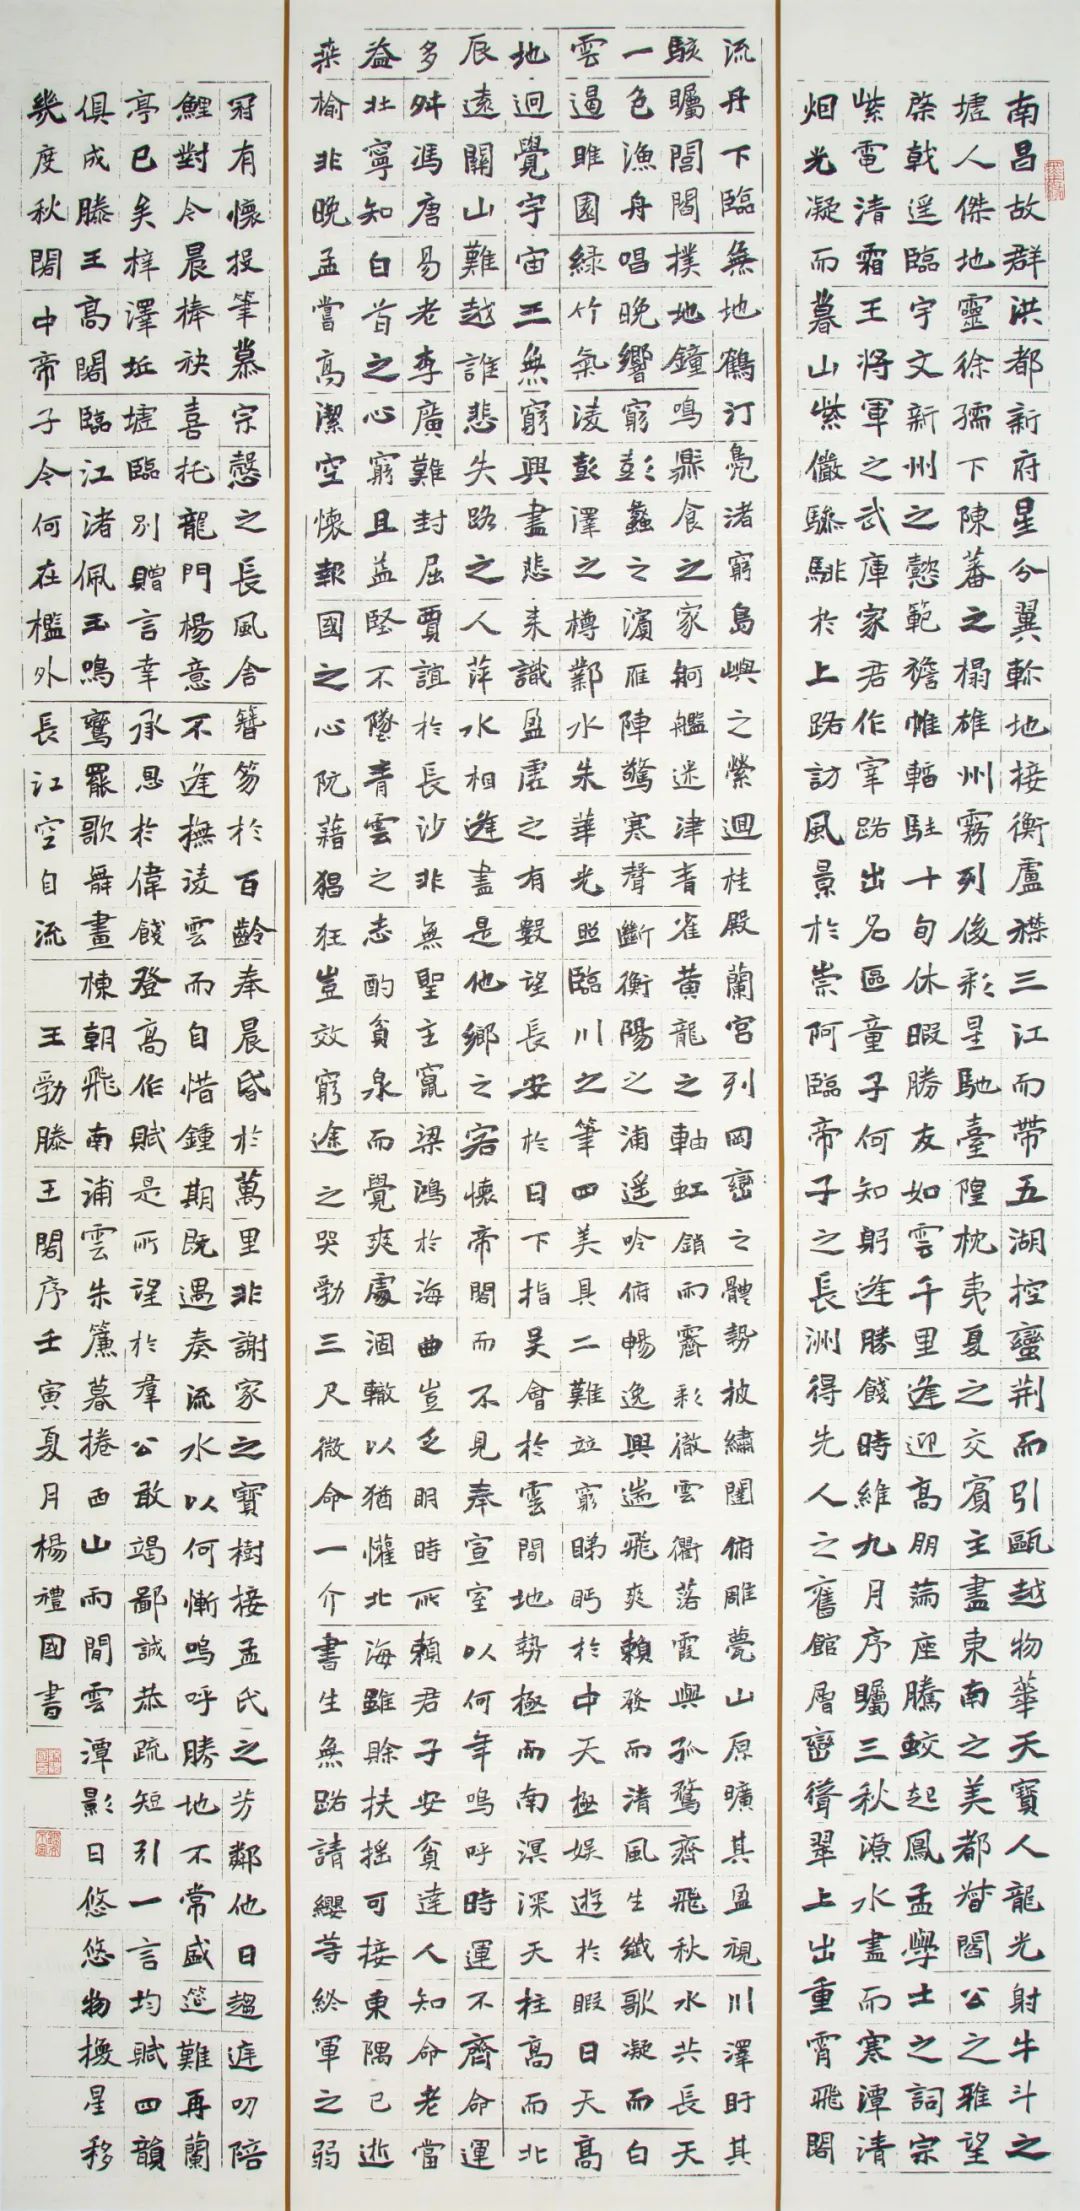 南昌故群洪都新府星分翼軫地接衡廬襟三江而帶五湖控蠻荊而引甌越物華天寶人龍光射牛斗之
墟人傑地靈徐孺下陳蕃之榻雄州霧列俊彩星馳臺隍枕夷夏之交賓主盡東南之美都督閻公之雅望
棨戟遥臨宇文新州之懿範襜帷輻駐十旬休暇勝友如雲千里逢迎高朋滿座騰蛟起鳳孟學士之詞宗
紫電清霜王將軍之武庫家君作宰路出名區童子何知躬逢勝餞時維九月序屬三秋潦水盡而寒潭清
烟光凝而暮山紫儼驂騑於上路訪風景於崇阿臨帝子之長洲得先人之舊館層巒聳翠上出重霄飛閣
流丹下臨無地鶴汀鳧渚窮島嶼之縈迴桂殿蘭宮列岡巒之體勢披繡闥俯雕甍山原曠其盈視川澤盱其
駭矚閭閻撲地鐘鳴鼎食之家舸艦迷津青雀黃龍之軸虹銷雨霽彩徹雲衢落霞與孤鶩齊飛秋水共長天
一色漁舟唱晚響窮彭蠡之濱雁陣驚寒聲斷衡陽之浦遥吟俯暢逸興遄飛爽籟發而清風生纖歌凝而白
雲遏睢園綠竹氣凌彭澤之樽鄴水朱華光照臨川之筆四美具二難並窮睇眄於中天極娛遊於暇日天高
地迥覺宇宙之無窮興盡悲來識盈虛之有數望長安於日下指吳會於雲間地勢極而南溟深天柱高而北
辰遠關山難越誰悲失路之人萍水相逢盡是他鄉之客懷帝閽而不見奉宣室以何年嗚呼時運不齊命運
多舛馮唐易老李廣難封屈賈誼於長沙非無聖主竄梁鴻於海曲豈乏明時所賴君子安貧達人知命老當
益壯寧知白首之心窮且益堅不墜青雲之志酌貪泉而覺爽處涸轍以猶懽北海雖賒扶搖可接東隅已逝
桑榆非晚孟嘗高潔空懷報國之心阮藉猖狂豈效窮途之哭勃三尺微命一介書生無路請纓等終軍之弱
冠有懷投筆慕宗慤之長風舍簪笏於百齡奉晨昏於萬里非謝家之寶樹接孟氏之芳鄰他日趨庭叨陪
鯉對今晨捧袂喜托龍門楊意不逢撫凌雲而自惜鍾期既遇奏流水以何慚嗚呼勝地不常盛筵難再蘭
亭已矣梓澤坵墟臨別贈言幸承恩於偉餞登高作賦是所望於羣公敢竭鄙誠恭疏短引一言均賦四韻
俱成滕王高閣臨江渚佩玉鳴鸞罷歌舞畫棟朝飛南浦雲朱簾暮捲西山雨閒雲潭影日悠悠物換星移
幾度秋閣中帝子今何在檻外長江空自流 王勃滕王閣序壬寅夏月楊禮國書